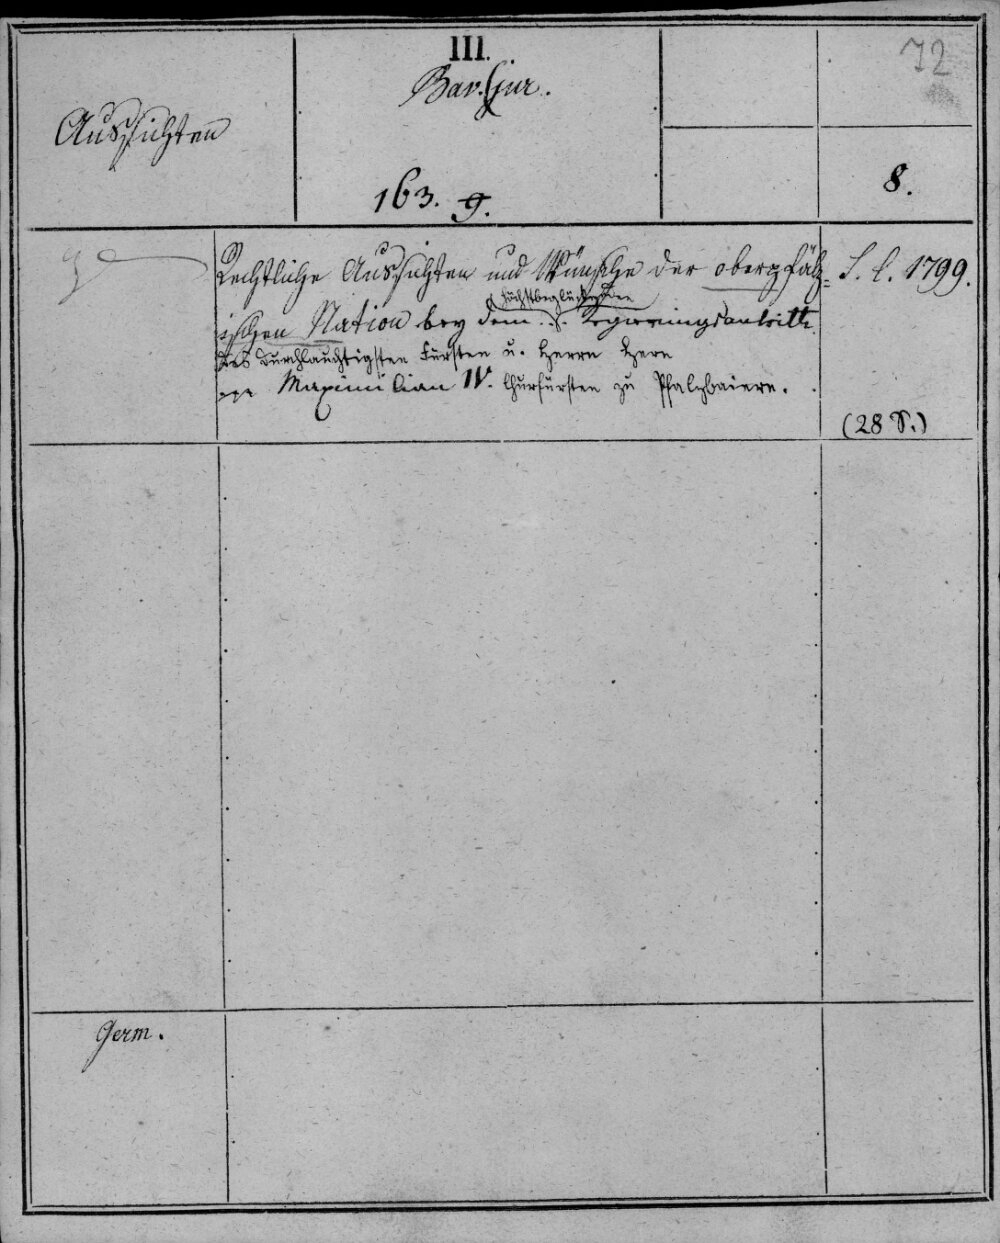 Aussichten
III.
Bav. Jur.
163. g.
72
8.
Rechtliche Aussichten und Wünsche der oberpfälz=
ischen Nation bey dem höchstbeglückenden Regierungsantritte
des durchlauchtigsten Fürsten u. Herrn Herrn
Maximilian IV. Churfürsten zu Pfalzbaiern.
S. l. 1799.
(28 S.)
Germ.